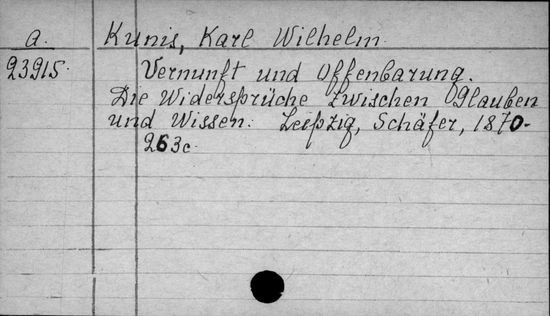 a. Kunis, Karl Wilhelm.
23915. Vernunft und Offenbarung.
Die Widersprüche zwischen Glauben
und Wissen. Leipzig, Schäfer, 1870.
263c.